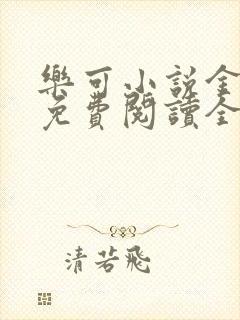 樂可小說全
免費閱讀全
清若飛